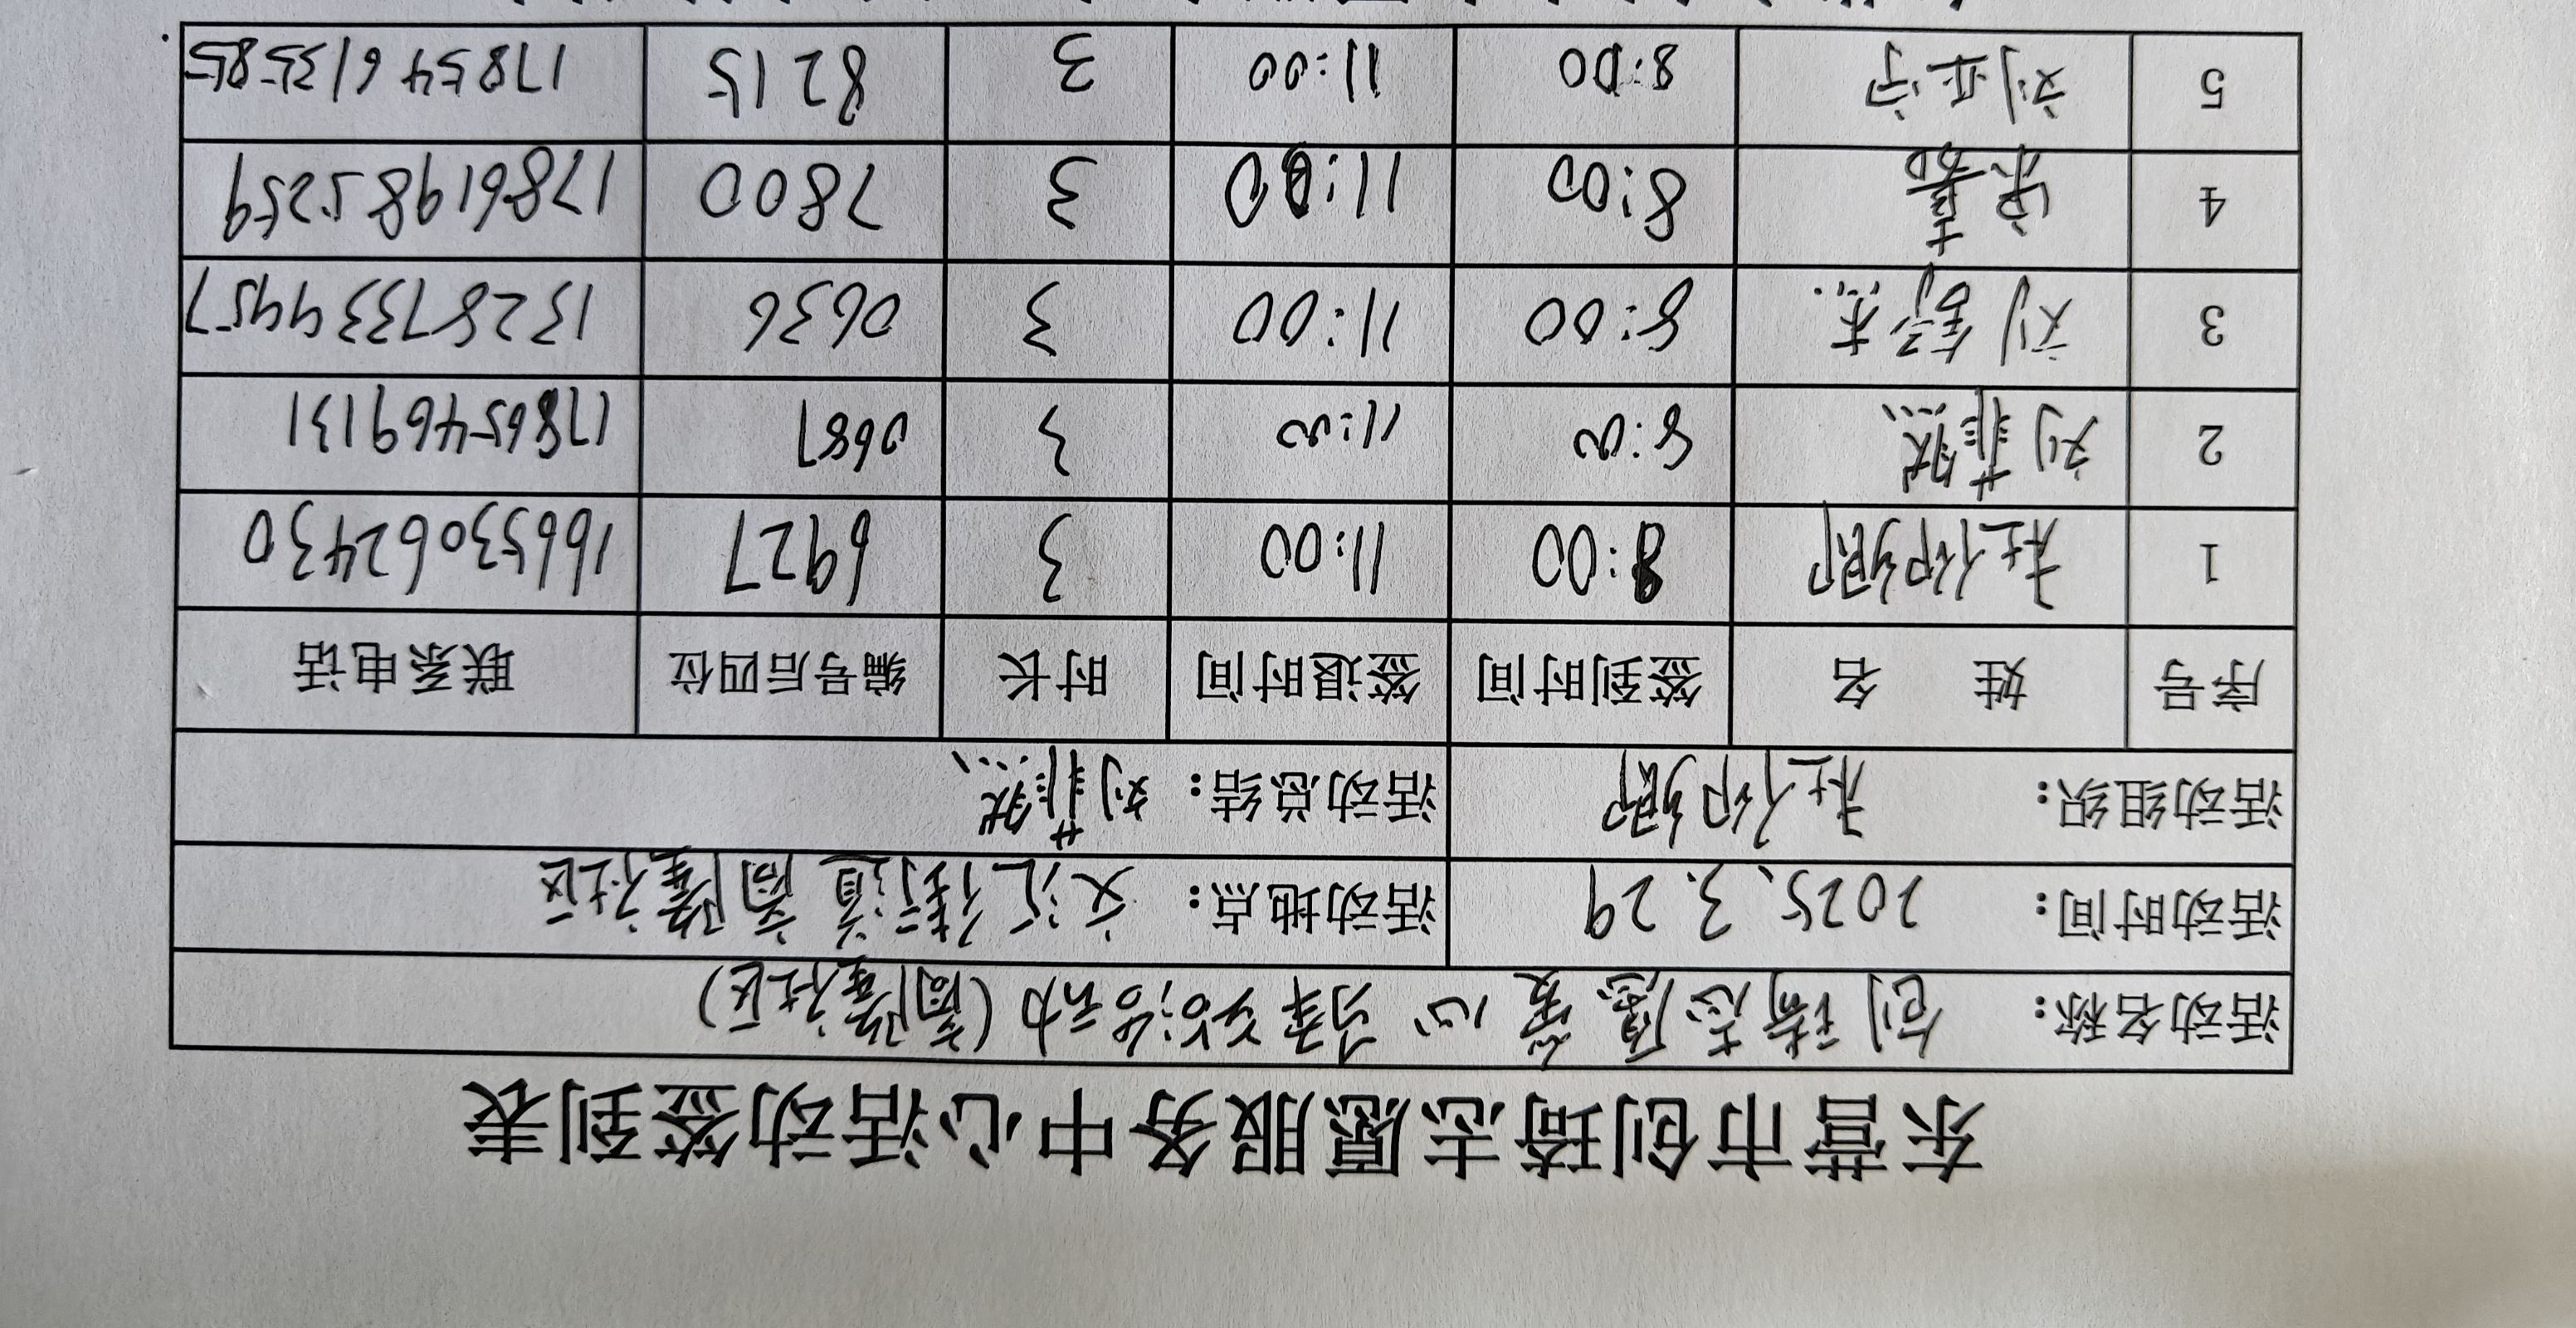 东营市创琦志愿服务中心活动签到表
活动名称： 创琦志愿爱心 活动（商隆社区）
活动时间： 2025.3.29 活动地点： 文汇街道商隆社区
活动组织： 杜 活动总结： 刘菲然
序号 姓名 签到时间 签退时间 时长 编号后四位 联系电话
1 杜 8:00 11:00 3 6927 16653062430
2 刘菲然 8:00 11:00 3 0687 17865469131
3 刘 杰 8:00 11:00 3 0636 13287339957
4 梁 8:00 11:00 3 7800 17861985259
5 刘 8:00 11:00 3 8215 17854613585